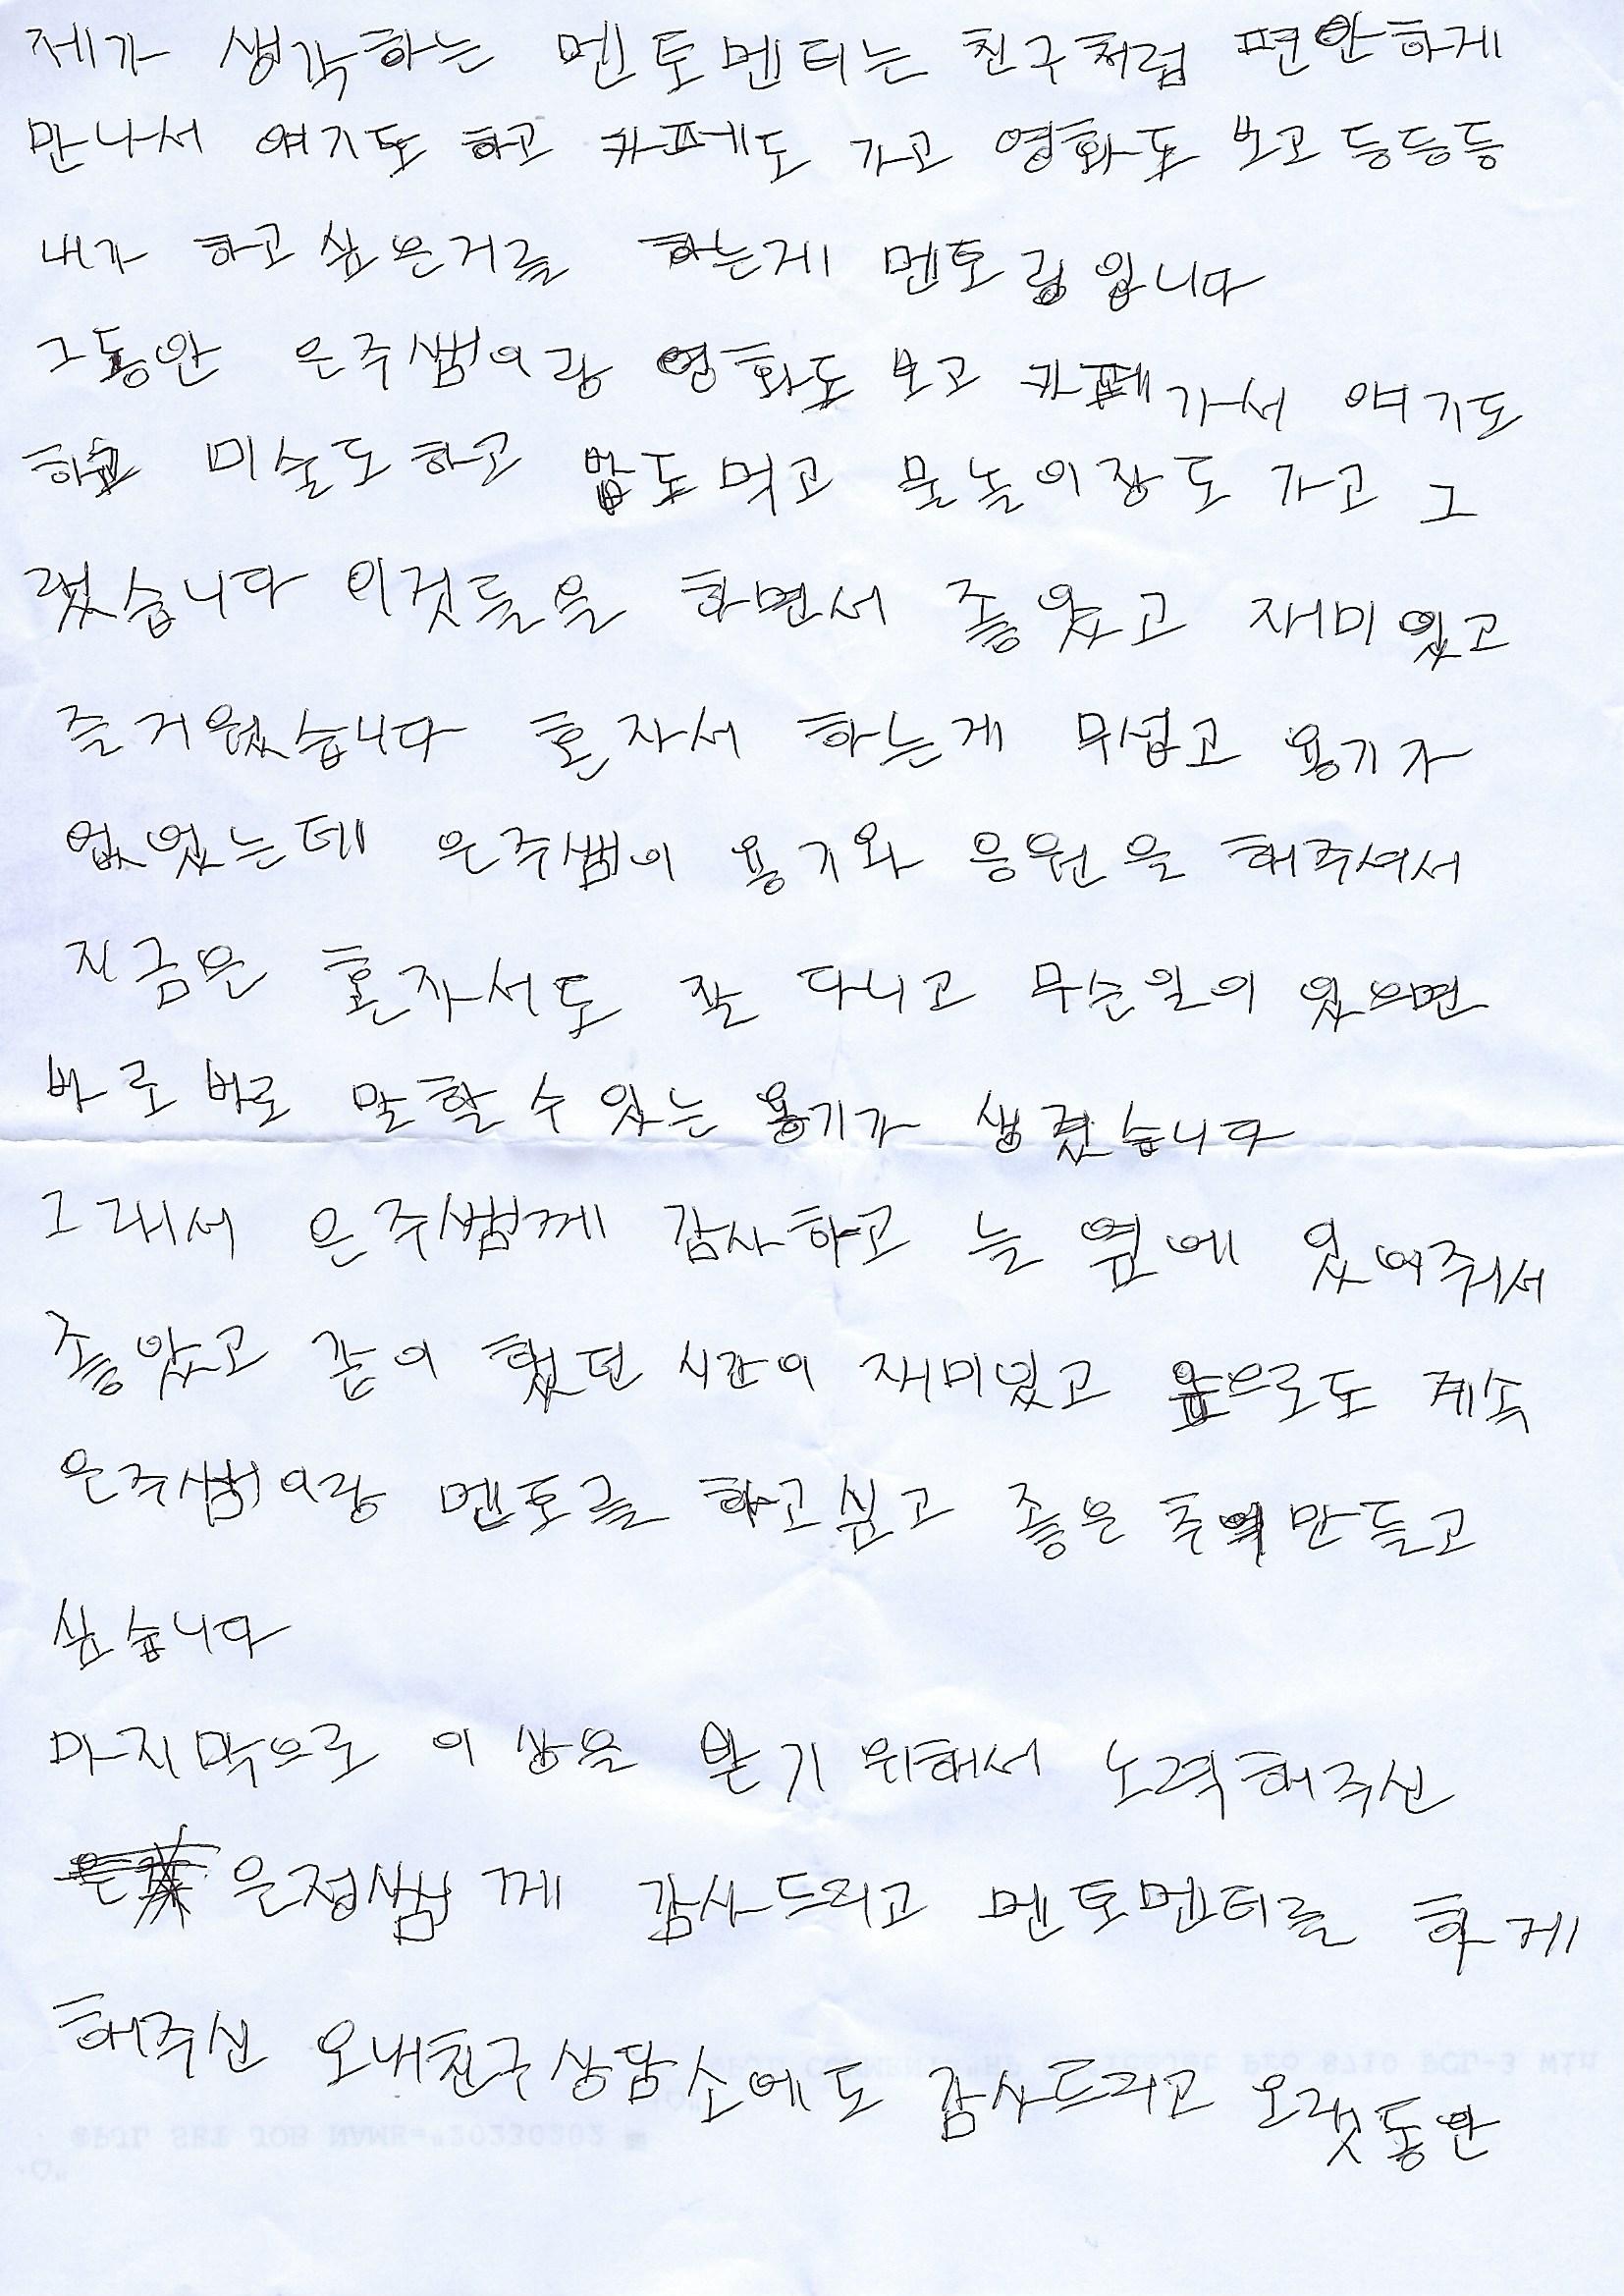 제가 생각하는 멘토멘티는 친구처럼 편안하게
만나서 얘기도 하고 카페도 가고 영화도 보고 등등등
내가 하고싶은거를 하는게 멘토링입니다
그동안 은주쌤이랑 영화도 보고 카페가서 얘기도
하고 미술도하고 밥도먹고 물놀이장도 가고 그
렜습니다 이것들을 하면서 좋았고 재미있고
즐거웠습니다 혼자서 하는게 무섭고 용기가
없었는데 은주쌤이 용기와 응원을 해주셔서
지금은 혼자서도 잘 다니고 무슨일이 있으면
바로바로 말할수있는 용기가 생겼습니다
그래서 은주쌤께 감사하고 늘 옆에 있어줘서
좋았고 같이 했던 시간이 재미있고 앞으로도 계속
은주쌤이랑 멘토를 하고싶고 좋은 추억만들고
싶습니다
마지막으로 이상을 받기위해서 노력해주신
은정쌤께 감사드리고 멘토멘티를 하게
해주신 오내친구상담소에도 감사드리고 오랫동안
@PJL SET JOB NAME="20230202